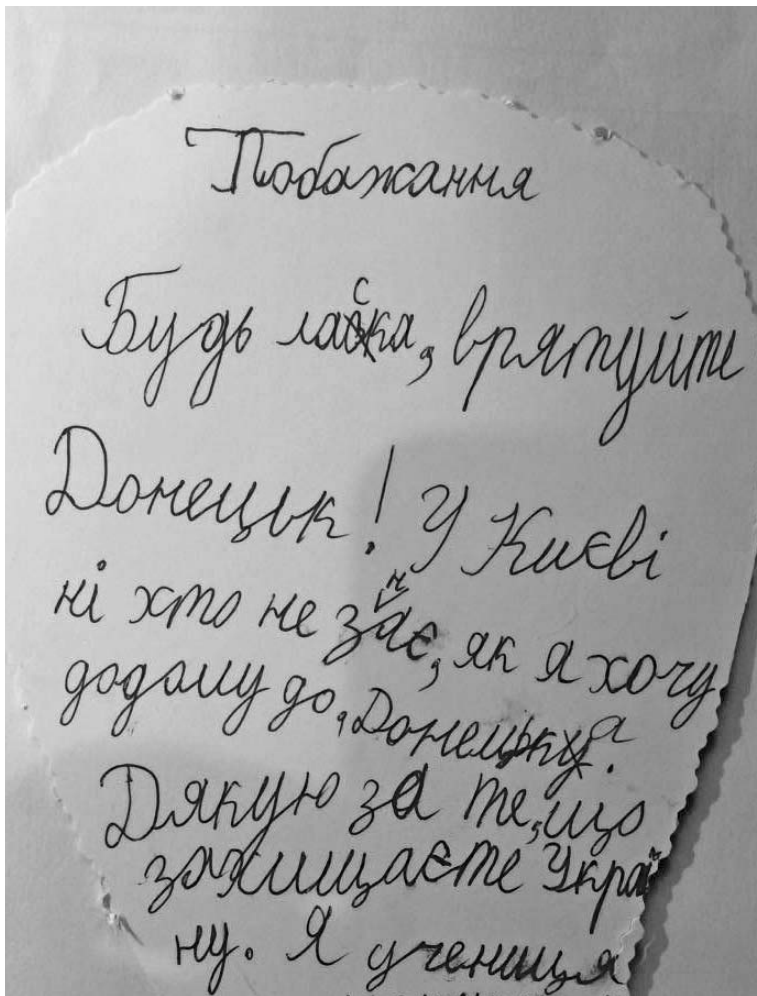 Побажання
Будь ласка, врятуйте
Донецьк! У Києві
ні хто не знає, як я хочу
додому до, Донецька.
Дякую за те, що
захищаєте Украї
ну. Я учениця